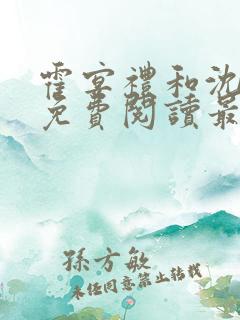 霍宴禮和沈
免費閱讀最
孫方敏
未經同意禁止轉載